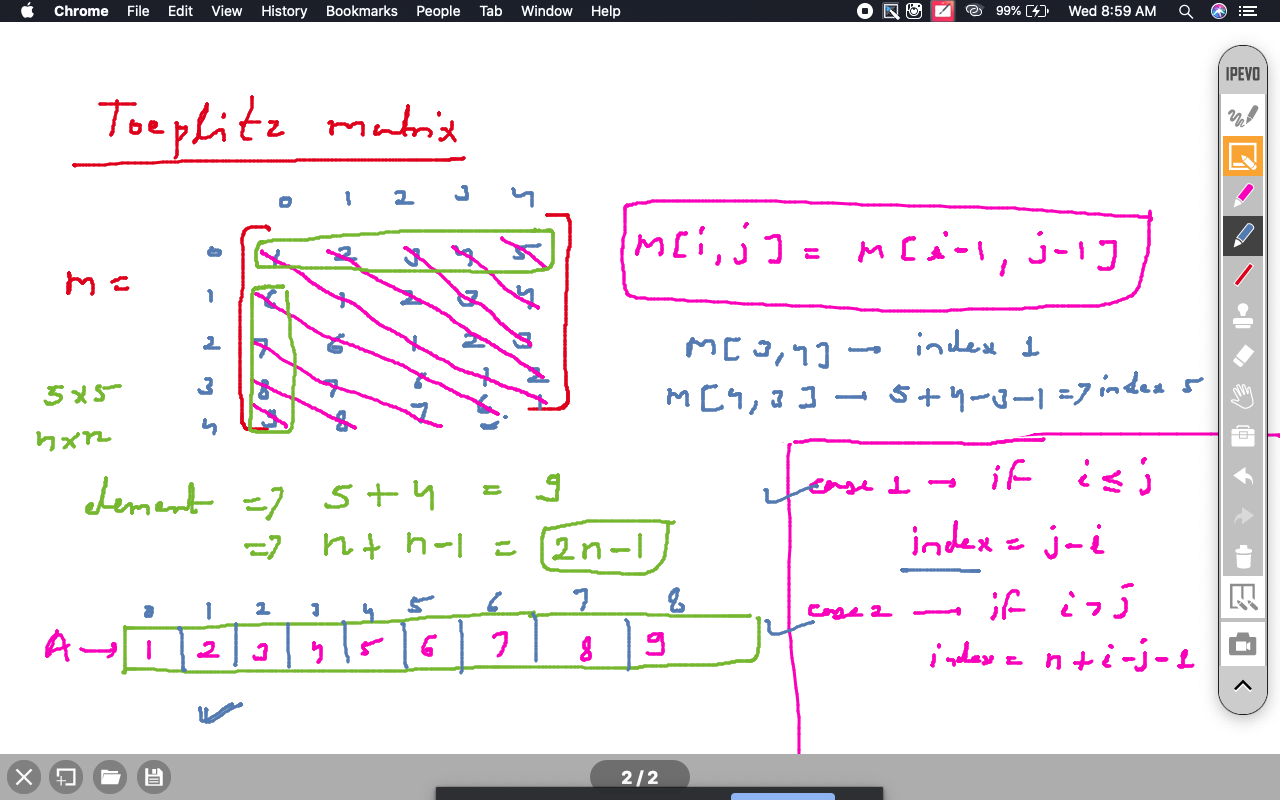 Chrome File Edit View History Bookmarks People Tab Window Help 99% Wed 8:59 AM
IPEVO
Toeplitz matrix
0 1 2 3 4
0 1 2 3 4 5
m = 1 6 1 2 3 4
2 7 6 1 2 3
3 8 7 6 1 2
4 9 8 7 6 1
5×5
n×n
M[i,j] = M[i-1, j-1]
M[3,4] → index 1
M[4,3] → 5+4-3-1 => index 5
element => 5+4 = 9
=> n+n-1 = 2n-1
0 1 2 3 4 5 6 7 8
A→ 1 2 3 4 5 6 7 8 9
case 1 → if i≤j
index = j-i
case 2 → if i>j
index = n+i-j-1
2 / 2